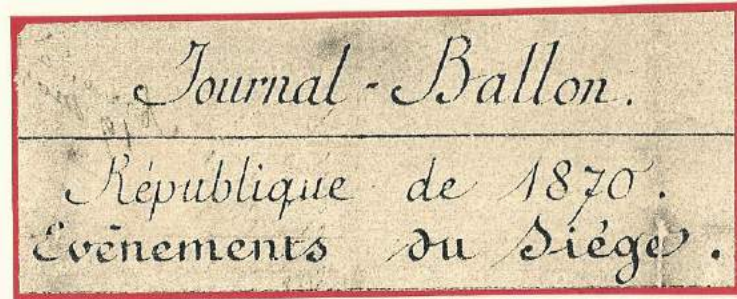 Journal-Ballon.
République de 1870.
Evénements du Siége.